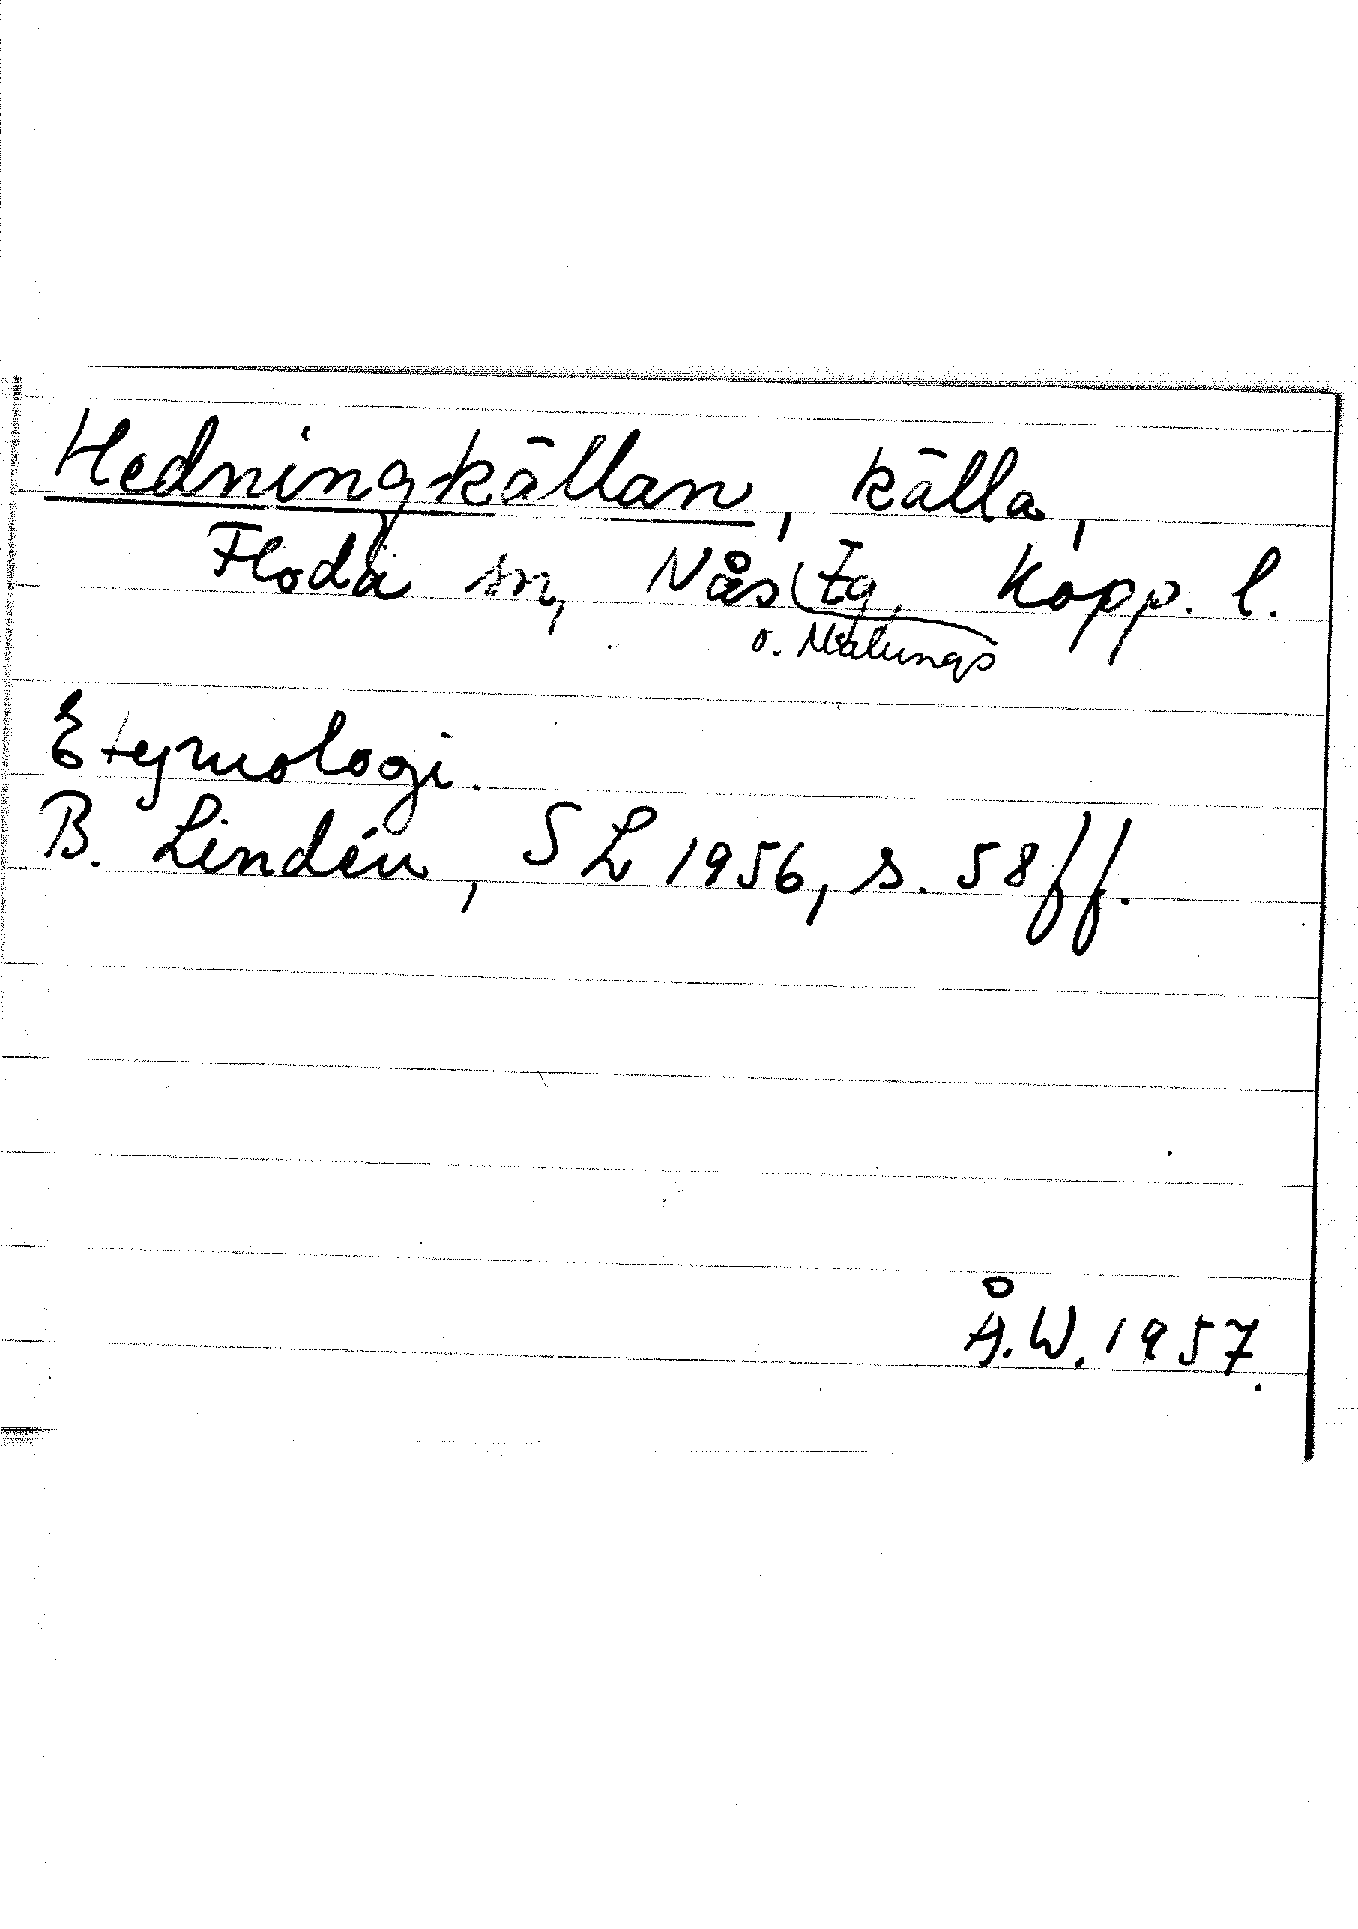 Hedningkällan, källa,
Floda sn, Nås o. Malungs tg, Kopp. l.
Etymologi.
B. Lindén, SL 1956, s. 58 ff.
Å.W. 1957.